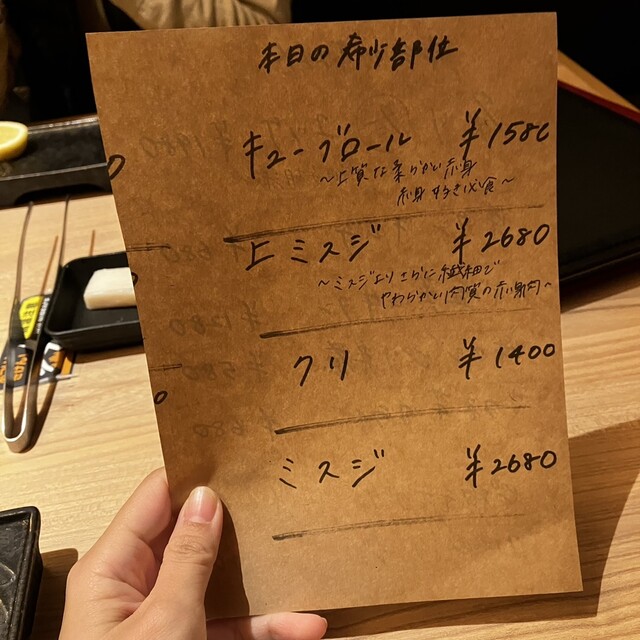 本日の希少部位
キューブロール ¥1580
~上質な柔らかい赤身
赤身好き必食~
上ミスジ ¥2680
~ミスジよりさらに繊細で
やわらかい肉質の赤身肉~
クリ ¥1400
ミスジ ¥2680